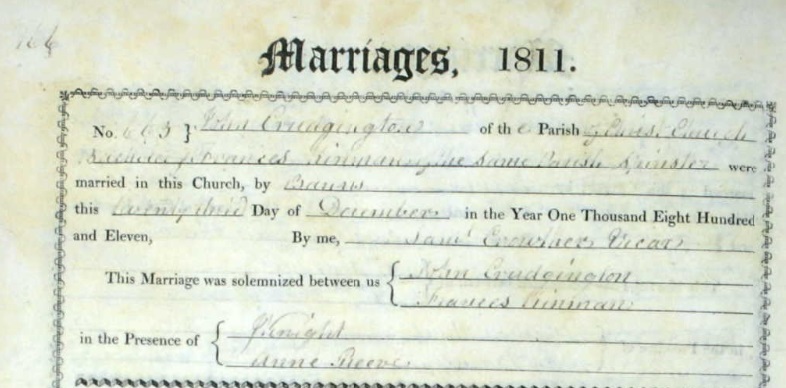 166
Marriages, 1811.
No. 663 } John Crudgington of the Parish of Christ Church
Bachelor & Frances Kinman of the same Parish Spinster were
married in this Church, by Banns
this twenty third Day of December in the Year One Thousand Eight Hundred
and Eleven, By me, Saml Crowther Vicar
This Marriage was solemnized between us { John Crudgington
Frances Kinman
in the Presence of { J Knight
Anne Reeve